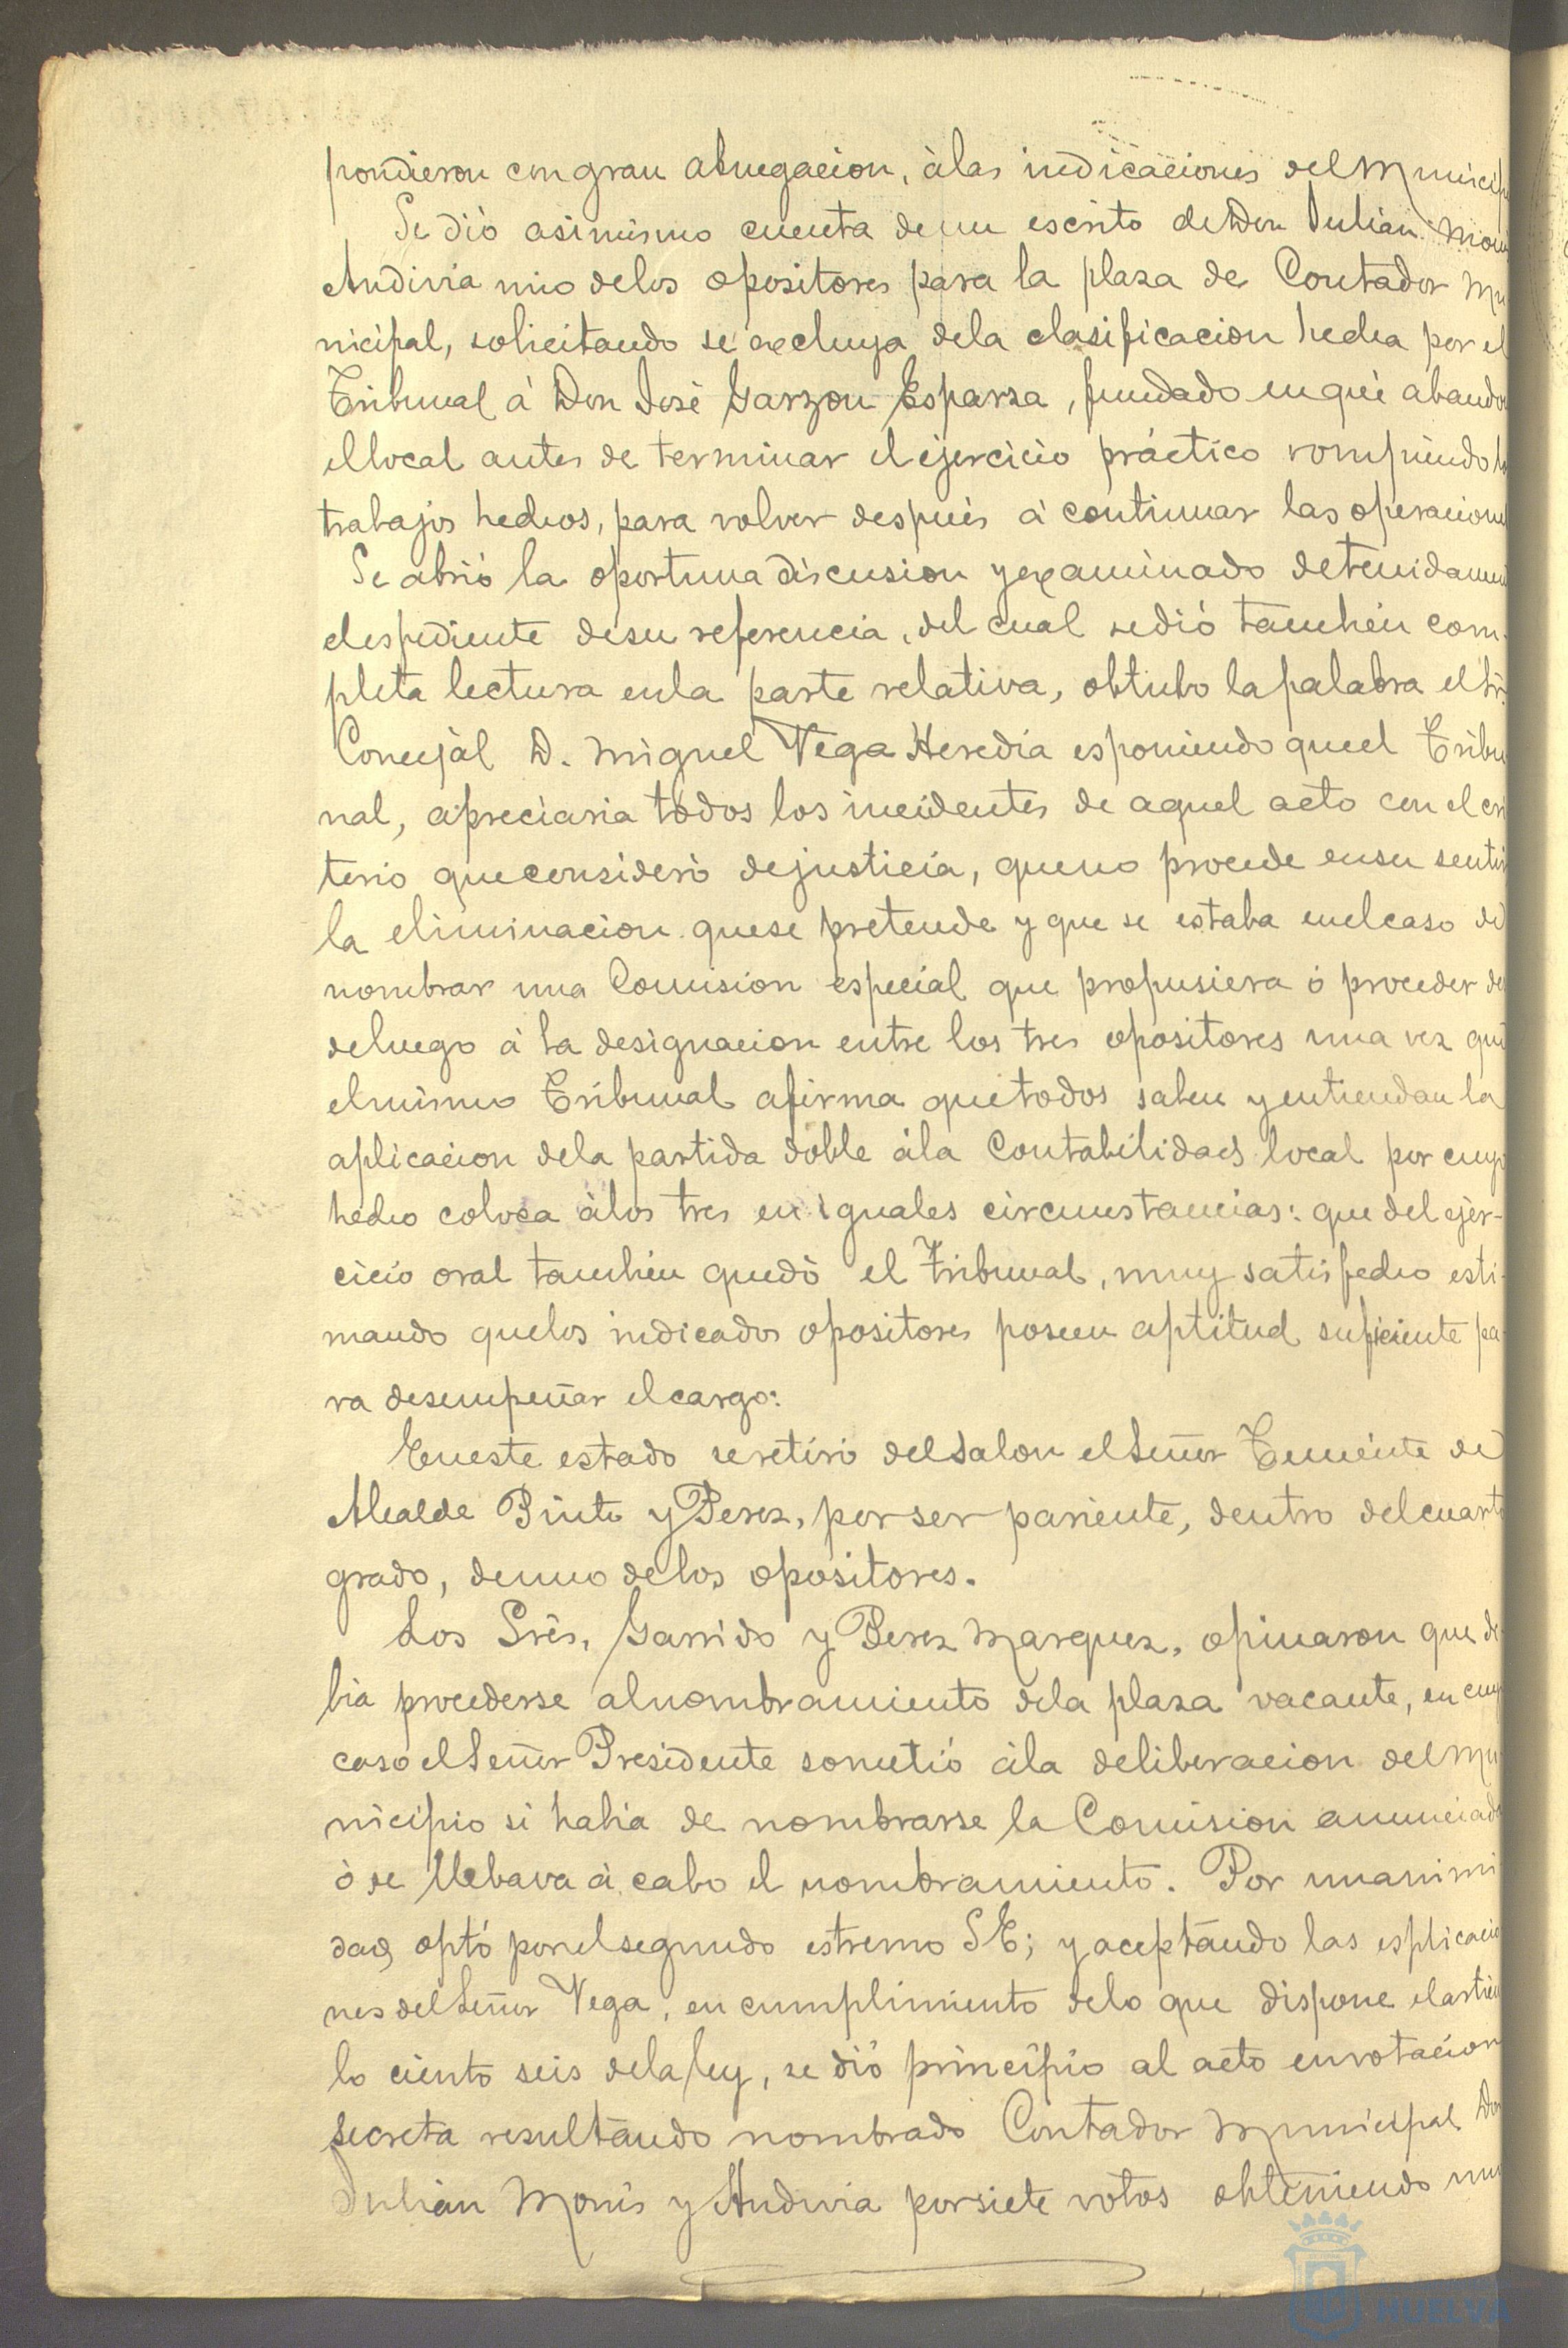 pondieron con gran abnegacion, à las indicaciones del Municip
Se dió asimismo cuenta de un escrito de Don Julián Mon
Andivia uno de los opositores para la plaza de Contador Mu
nicipal, solicitando se excluya de la clasificacion hecha por el
Tribunal à Don José Garzon Esparza, fundado en que abando
el local antes de terminar el ejercicio práctico rompiendo lo
trabajos hechos, para volver después à continuar las operacione
Se abrió la oportuna discusion y examinado detenidament
el espediente de su referencia, del cual se dió tambien com-
pleta lectura en la parte relativa, obtubo la palabra el Sr.
Concejal D. Miguel Vega Heredia esponiendo que el Tribu
nal, apreciaria todos los incidentes de aquel acto con el cri
terio que consideró de justicia, que no procede en su sentir
la eliminacion que se pretende y que se estaba en el caso de
nombrar una Comision especial que propusiera ó proceder des
de luego à la designacion entre los tres opositores una vez que
el mismo Tribunal afirma que todos saben y entiendan la
aplicacion de la partida doble à la Contabilidad local por cuyo
hecho coloca à los tres en iguales circunstancias: que del ejer-
cicio oral tambien quedó el Tribunal, muy satisfecho esti-
mando que los indicados opositores poseen aptitud suficiente pa-
ra desempeñar el cargo:
En este estado se retiró del Salon el Señor Teniente de
Alcalde Pinto y Perez, por ser pariente, dentro del cuarto
grado, de uno de los opositores.
Los Srès. Garrido y Perez Marquez, opinaron que de-
bia procederse al nombramiento de la plaza vacante, en cuyo
caso el Señor Presidente sometió à la deliberacion del Mu-
nicipio si habia de nombrarse la Comision anunciada
ò se llebava à cabo el nombramiento. Por unanimi
dad optó por el segundo estremo S E; y aceptando las esplicacio
nes del Señor Vega, en cumplimiento de lo que dispone el articu
lo ciento seis de la ley, se dió principio al acto en votacion
secreta resultando nombrado Contador Municipal Don
Julián Monis y Andivia por siete votos obteniendo uno
HUELVA